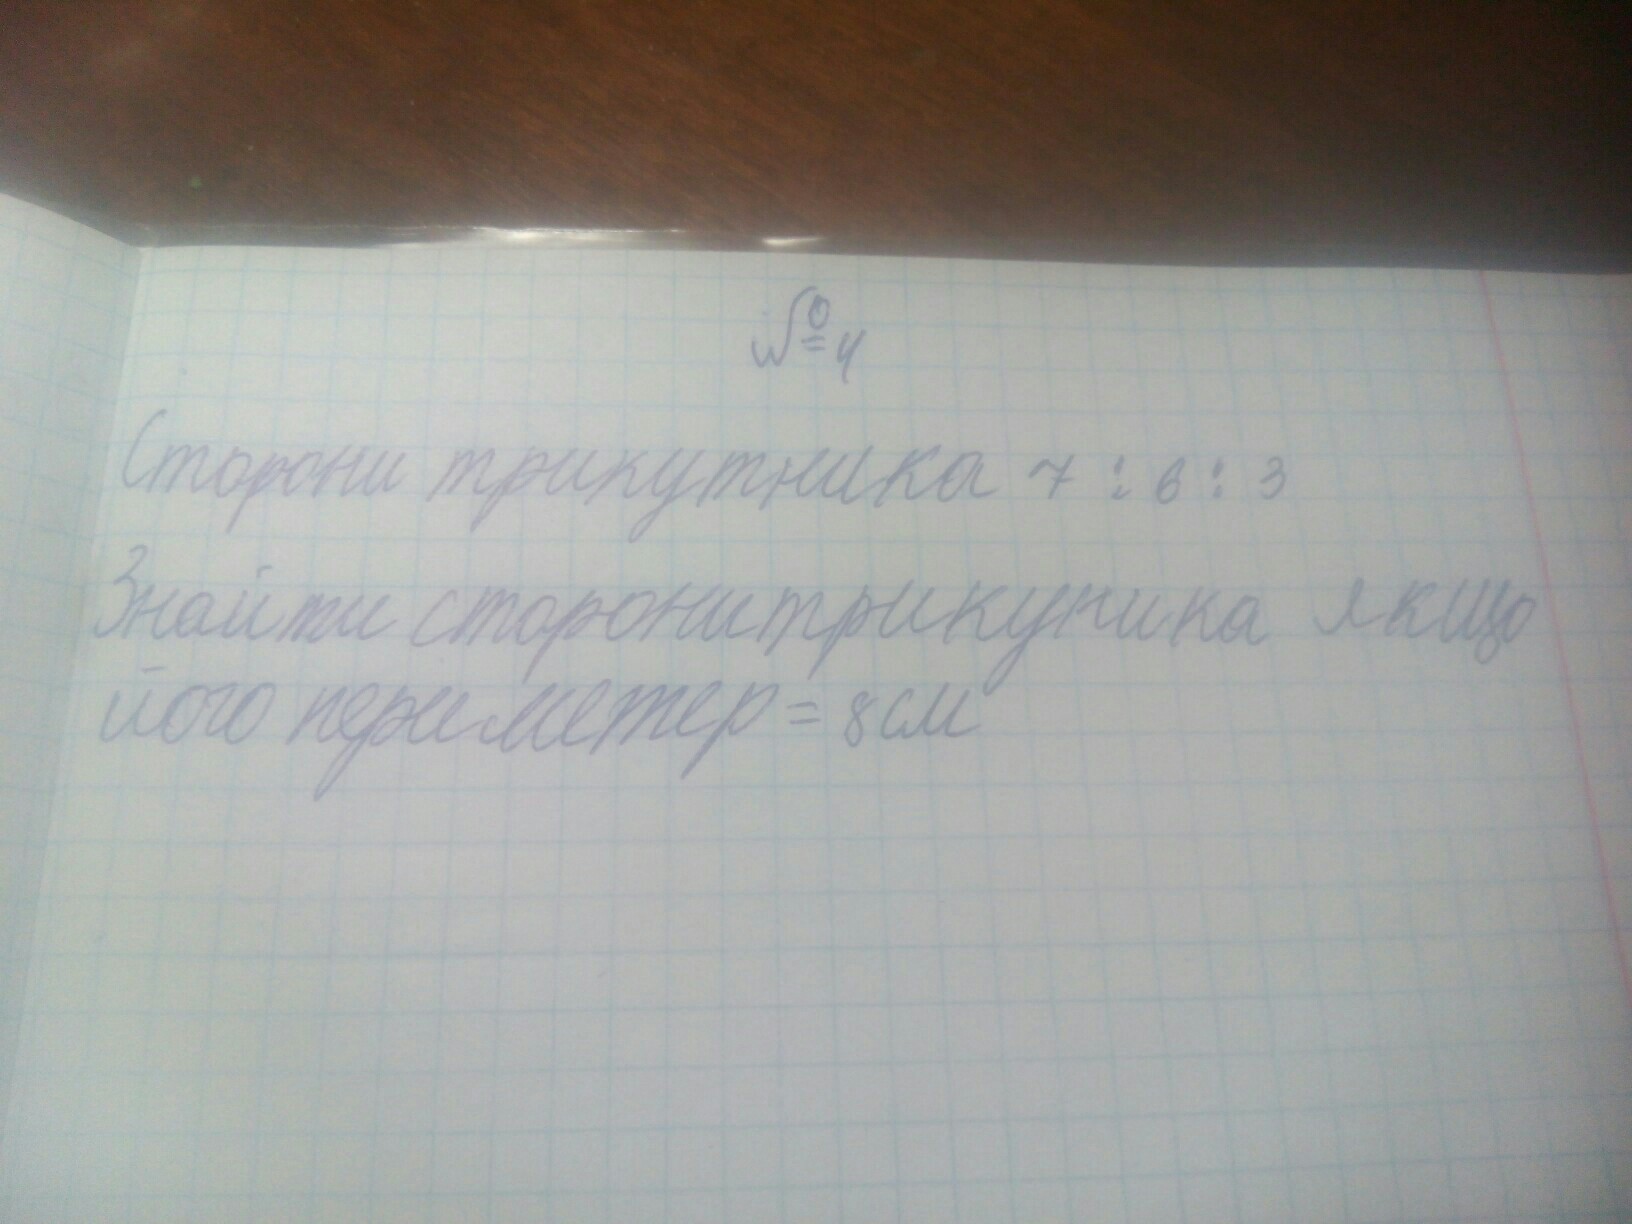 №4
Сторони трикутника 7 : 6 : 3
Знайти сторони трикуника якщо
його периметер = 8 см